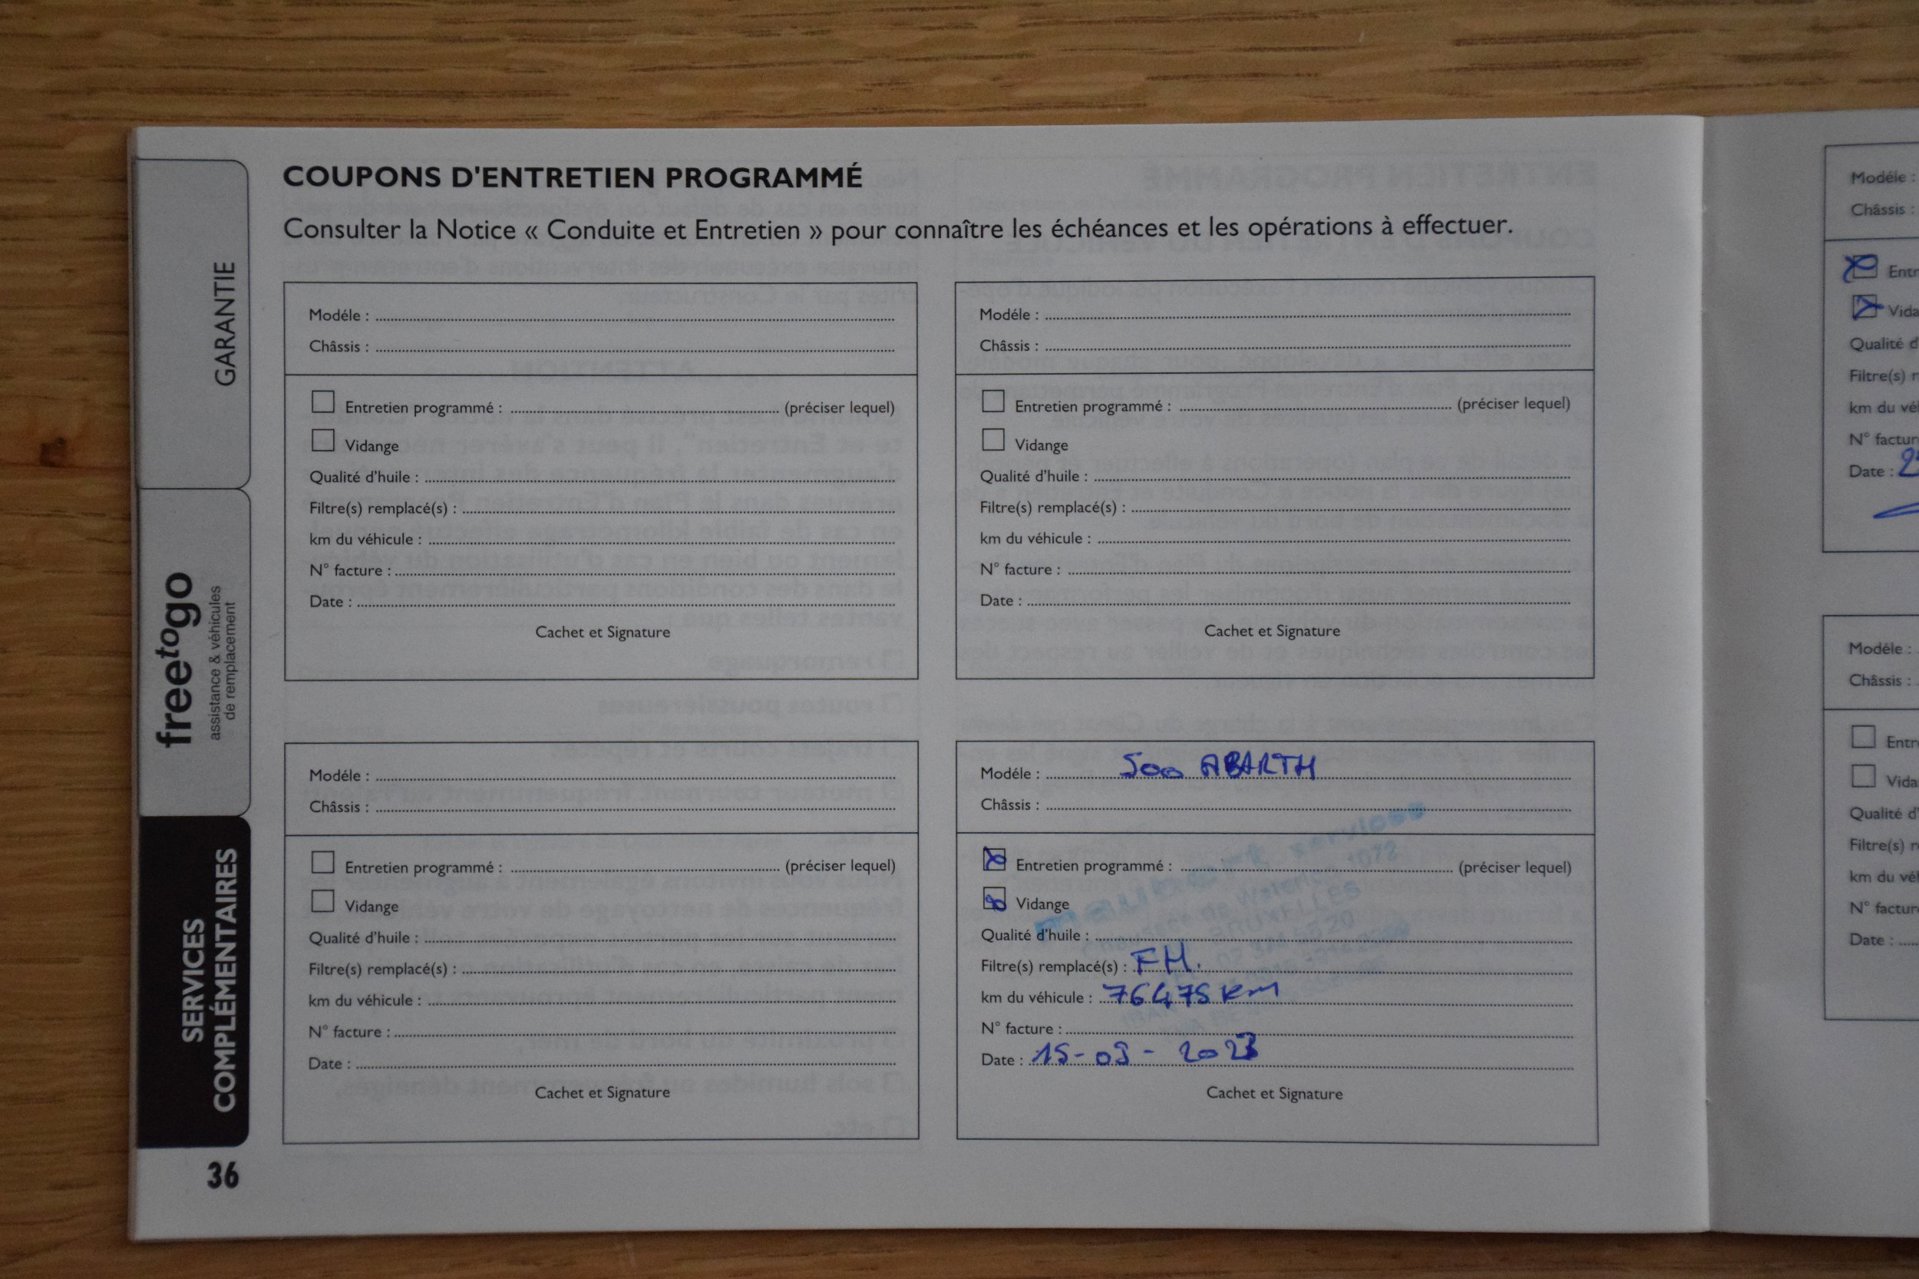 COUPONS D'ENTRETIEN PROGRAMMÉ
Consulter la Notice « Conduite et Entretien » pour connaître les échéances et les opérations à effectuer.
GARANTIE
freetogo
assistance & véhicules
de remplacement
SERVICES
COMPLÉMENTAIRES
36
Modéle :
Châssis :
Entretien programmé : (préciser lequel)
Vidange
Qualité d'huile :
Filtre(s) remplacé(s) :
km du véhicule :
N° facture :
Date :
Cachet et Signature
Modéle :
Châssis :
Entretien programmé : (préciser lequel)
Vidange
Qualité d'huile :
Filtre(s) remplacé(s) :
km du véhicule :
N° facture :
Date :
Cachet et Signature
Modéle :
Châssis :
Entretien programmé : (préciser lequel)
Vidange
Qualité d'huile :
Filtre(s) remplacé(s) :
km du véhicule :
N° facture :
Date :
Cachet et Signature
Modéle : 500 ABARTH
Châssis :
Entretien programmé : (préciser lequel)
Vidange
Qualité d'huile :
Filtre(s) remplacé(s) : FH.
km du véhicule : 76475 km
N° facture :
Date : 15-05-2023
Cachet et Signature
services
1072
BRUXELLES
Modéle :
Châssis :
Entr
Vida
Qualité d
Filtre(s) r
km du vé
N° factur
Date :
Modéle :
Châssis :
Entr
Vida
Qualité d'
Filtre(s) r
km du vé
N° factur
Date :